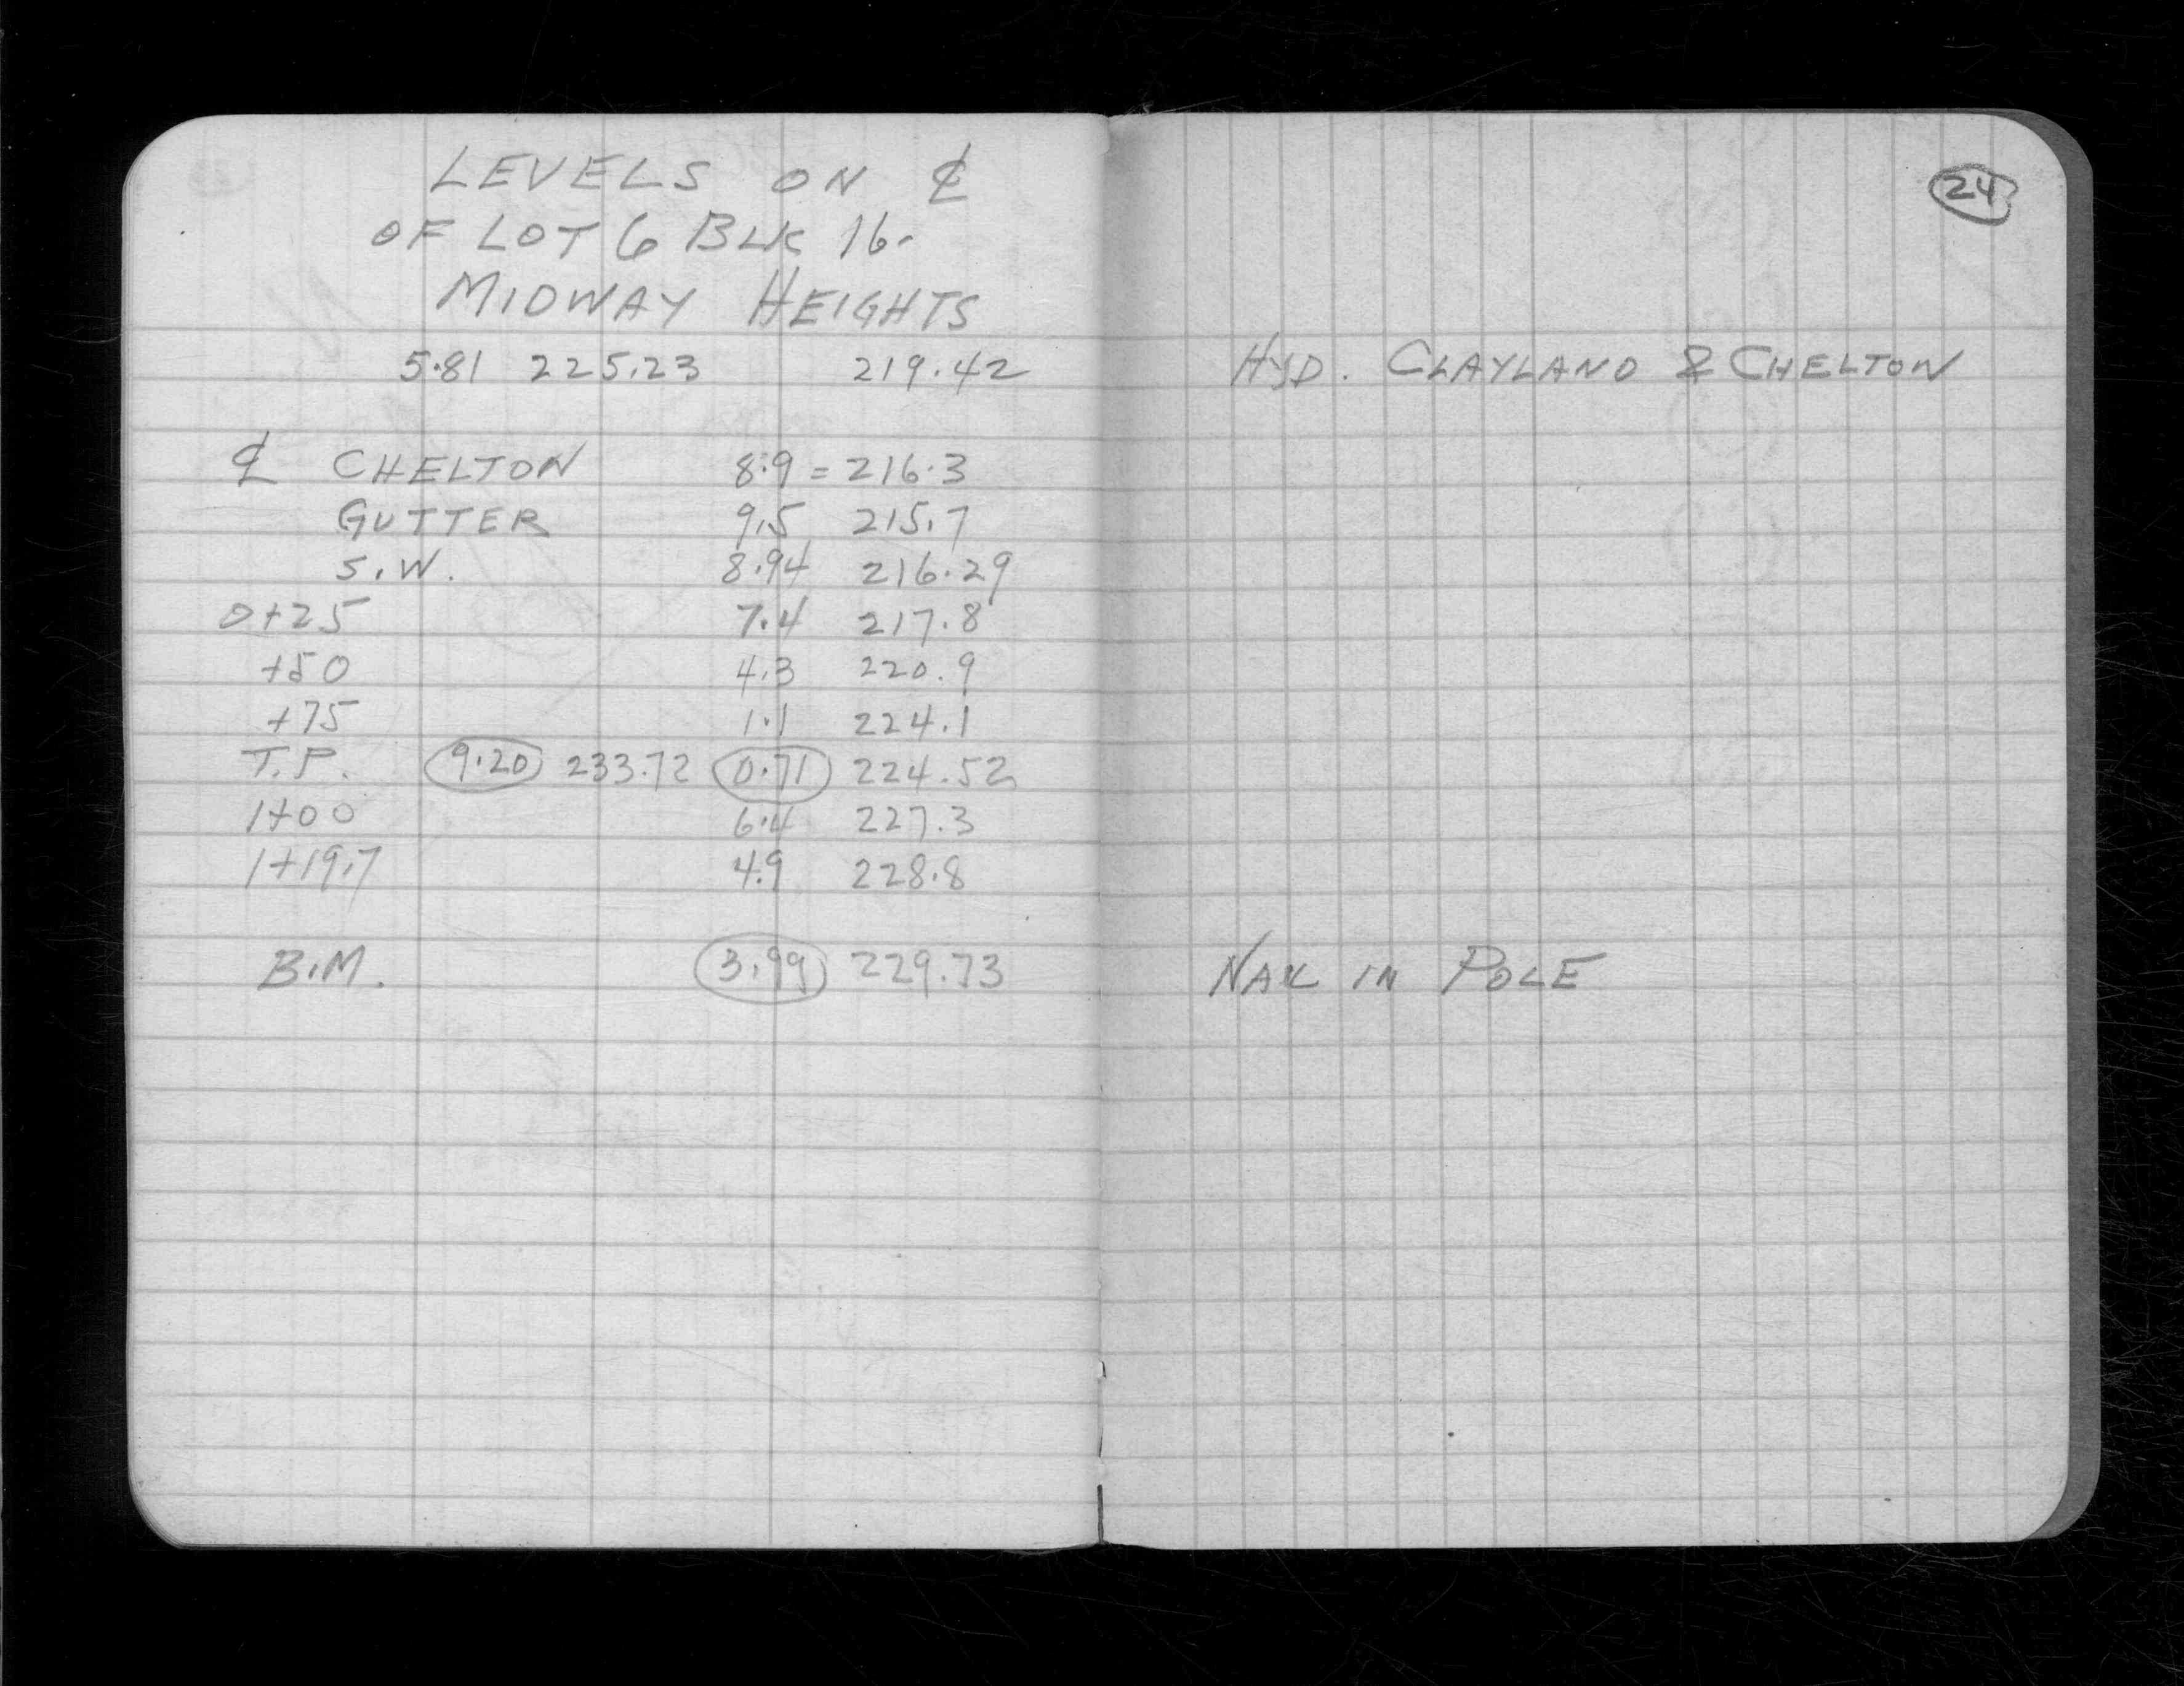 LEVELS ON ℄
OF LOT 6 BLK 16.
MIDWAY HEIGHTS
5.81 225.23 219.42
℄ CHELTON 8.9 = 216.3
GUTTER 9.5 215.7
S.W. 8.94 216.29
0+25 7.4 217.8
+50 4.3 220.9
+75 1.1 224.1
T.P. 9.20 233.72 0.71 224.52
1+00 6.4 227.3
1+19.7 4.9 228.8
B.M. 3.99 229.73
24
HYD. CLAYLAND & CHELTON
NAIL IN POLE